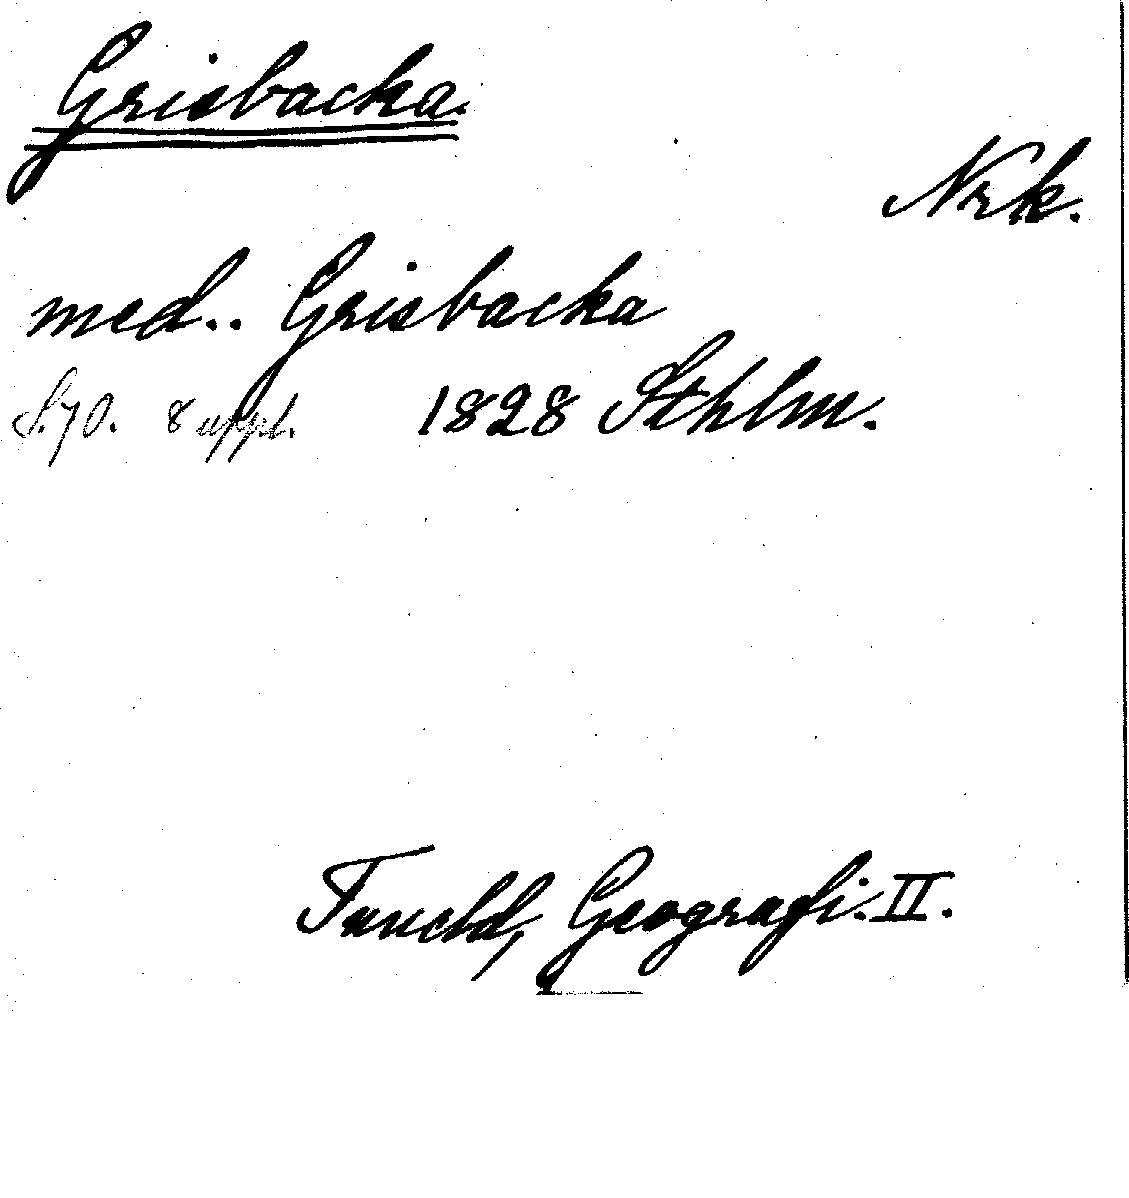 Grisbacka.
Nrk.
med.. Grisbacka
S. 70. 8 uppl. 1828 Sthlm.
Tuneld, Geografi. II.